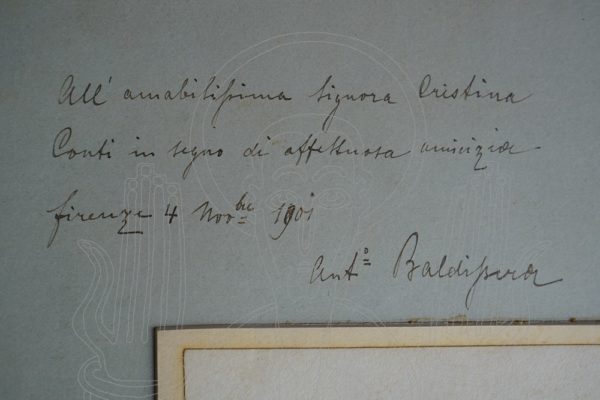 All' amabilissima Signora Cristina
Conti in segno di affettuosa amicizia
Firenze 4 Novbre 1901
Anto Baldissera